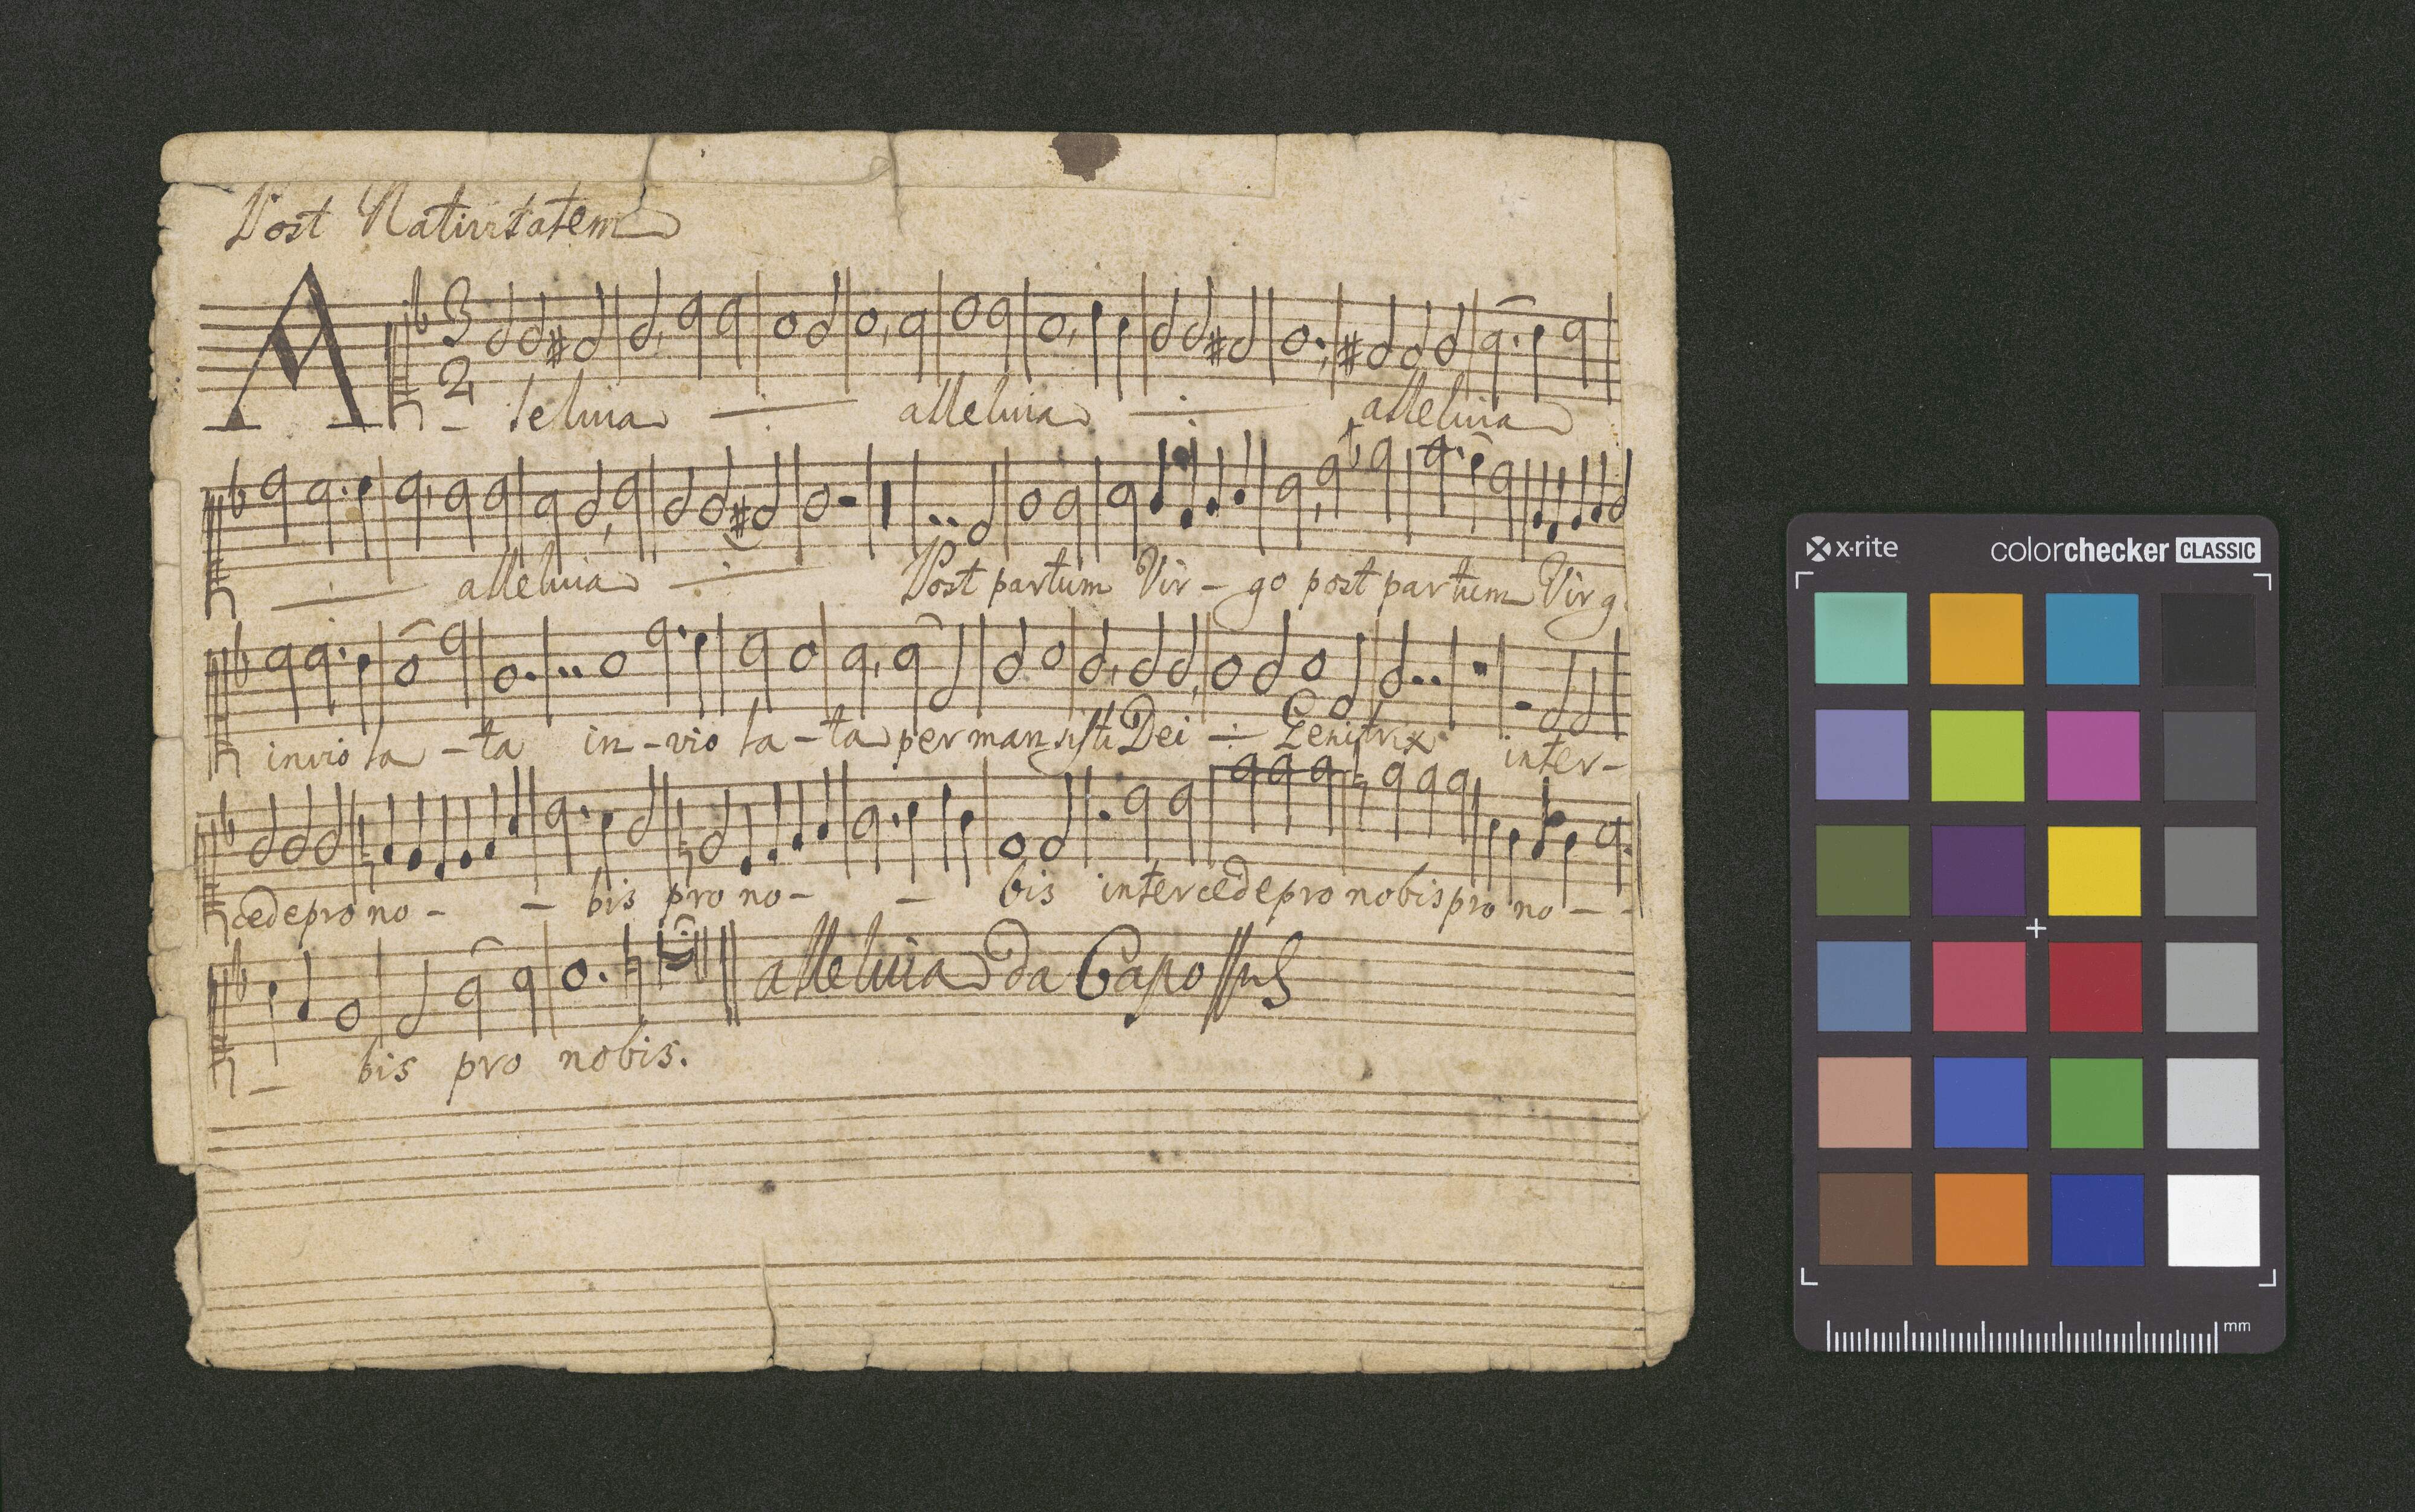 Post Nativitatem
3
2
A - leluia alleluia alleluia
alleluia Post partum Vir - go post partum Virg.
inviola - ta in - viola - ta permansisti Dei Genitrix inter-
cede pro no - - bis pro no - - bis intercede pro nobis pro no - -
alleluia da Capo
- bis pro nobis.
x·rite colorchecker CLASSIC
mm